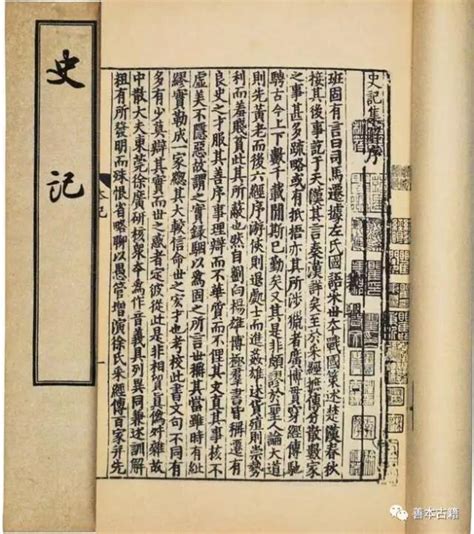 史記
史記集解序
駰
班固有言曰司馬遷據左氏國語采世本戰國策述楚漢春秋
接其後事訖于天漢其言秦漢詳矣至於采經摭傳分散數家
之事甚多疏略或有抵捂亦其所涉獵者廣博貫穿經傳馳
騁古今上下數千載間斯已勤矣又其是非頗謬於聖人論大道
則先黃老而後六經序游俠則退處士而進姦雄述貨殖則崇勢
利而羞賤貧此其所蔽也然自劉向楊雄博極羣書皆稱遷有
良史之才服其善序事理辯而不華質而不俚其文直其事核不
虛美不隱惡故謂之實錄駰以為固之所言世稱其當雖時有紕
繆實勒成一家緫其大較信命世之宏才也考校此書文句不同有
多有少莫辯其實而世之惑者定彼從此是非相貿真偽舛雜故
中散大夫東莞徐廣研核衆本為作音義具列異同兼述訓解
粗有所發明而殊恨省略聊以愚管增演徐氏采經傳百家并先
本紀
善本古籍